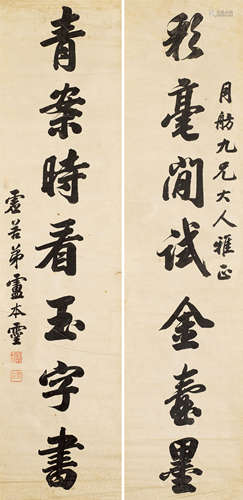 月舫九兄大人雅正
彩毫閒試金壺墨
青案時看玉字書
弟盧本